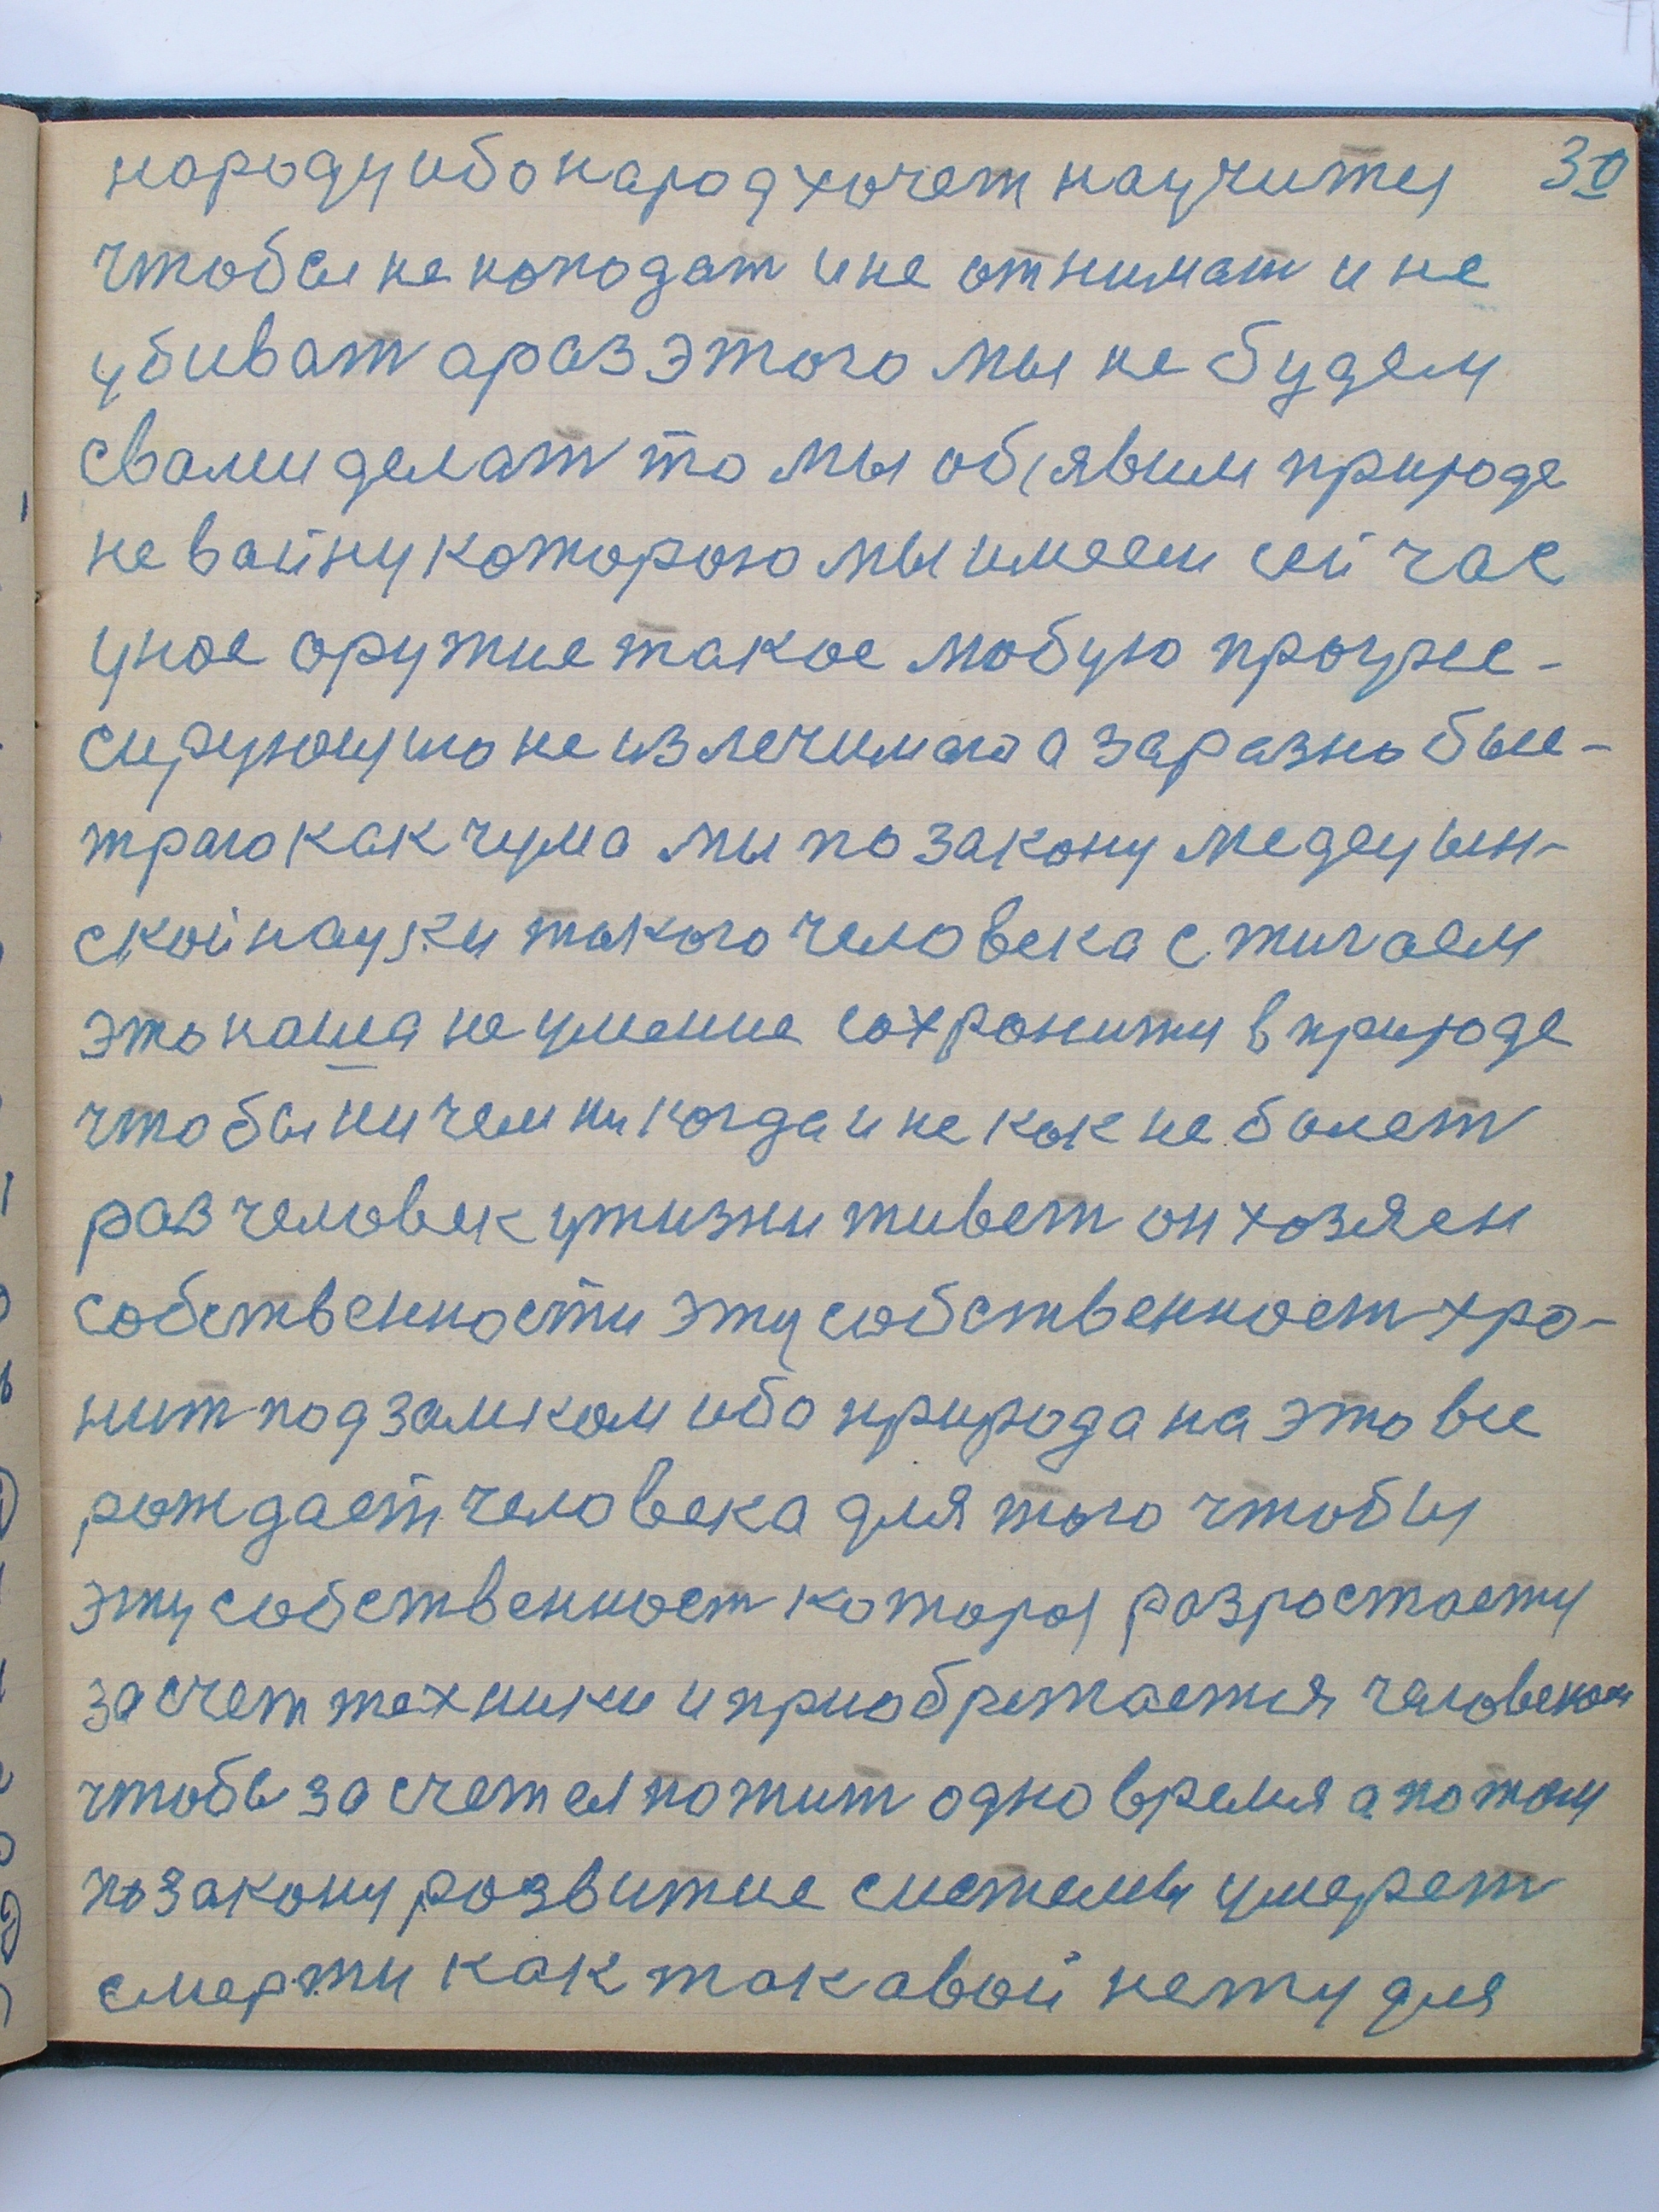 народу ибо народ хочет научится 30
чтобы не нападат и не отнимат и не
убиват а раз этого мы не будем
свами делат то мы обявим природе
не вайну которою мы имеем сей час
уное оружие такое любую прогрес-
сирующию не излечимаю а заразно быс-
траю как чума мы по закону медецын-
ской науки такого человека стигаем
это наша не умение сохранится в природе
чтобы ни чем ни когда и не как не болет
раз человек ужизни живет он хозяен
собственности эту собственност хра-
нит под замком ибо природа на это все
рождает человека для того чтобы
эту собственност которая разростается
за счет техники и приобретается человеком
чтобы за счет ея пожит одно время а потом
по закону розвитие системы умерет
смерти как таковой нету для